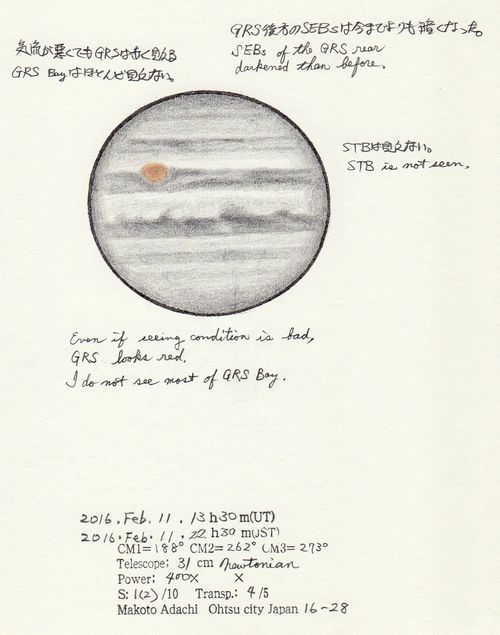 気流が悪くてもGRSは赤く見える
GRS Bayはほとんど見えない。
GRS後方のSEBsは今までよりも暗くなった。
SEBs of the GRS rear
darkened than before.
STBは見えない。
STB is not seen.
Even if seeing condition is bad,
GRS looks red.
I do not see most of GRS Bay.
2016. Feb. 11. 13 h30 m(UT)
2016. Feb. 11. 22 h30 m(JST)
CM1=188° CM2=262° CM3=273°
Telescope; 31 cm Newtonian
Power; 400X X
S: 1(2)/10 Transp.: 4/5
Makoto Adachi Ohtsu city Japan 16-28